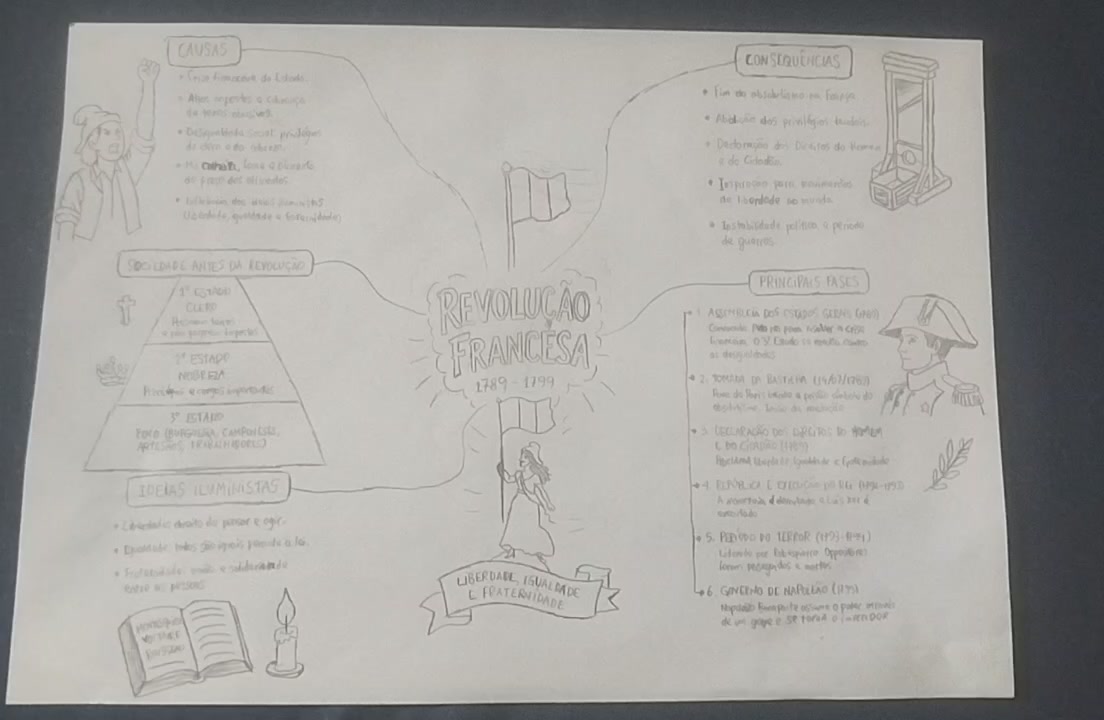 CAUSAS
• Crise financeira do Estado.
• Altos impostos e cobrança
• Desigualdade social privilégios
do clero e da nobreza.
• Má colheita, fome e
do preço dos alimentos
• Influência das ideias iluministas
(Liberdade, igualdade e fraternidade)
SOCIEDADE ANTES DA REVOLUÇÃO
1º ESTADO
CLERO
e não pagavam impostos
2º ESTADO
NOBREZA
Privilégios e cargos importantes
3º ESTADO
POVO (BURGUESIA, CAMPONESES,
ARTESÃOS, TRABALHADORES)
IDEIAS ILUMINISTAS
• Liberdade: direito de pensar e agir.
• Igualdade: todos são iguais perante a lei.
• Fraternidade: união e solidariedade
entre as pessoas
MONTESQUIEU
VOLTAIRE
ROUSSEAU
REVOLUÇÃO
FRANCESA
1789 - 1799
LIBERDADE, IGUALDADE
E FRATERNIDADE
CONSEQUÊNCIAS
• Fim do absolutismo na França
• Abolição dos privilégios feudais.
• Declaração dos Direitos do Homem
e do Cidadão.
• Inspiração para movimentos
de liberdade no mundo.
• Instabilidade política e período
de guerras.
PRINCIPAIS FASES
1. ASSEMBLEIA DOS ESTADOS GERAIS (1789)
Convocada pelo rei para resolver a crise
financeira. O 3º Estado se revolta contra
as desigualdades
2. TOMADA DA BASTILHA (14/07/1789)
Povo de Paris invade a prisão símbolo do
absolutismo. Início da revolução
3. DECLARAÇÃO DOS DIREITOS DO HOMEM
E DO CIDADÃO (1789)
liberdade, igualdade e fraternidade
4. REPÚBLICA E EXECUÇÃO DO REI (1792-1793)
A monarquia é derrubada e Luís XVI é
executado
5. PERÍODO DO TERROR (1793-1794)
Liderado por Robespierre. Opositores
foram perseguidos e mortos
6. GOVERNO DE NAPOLEÃO (1799)
Napoleão Bonaparte assume o poder através
de um golpe e se torna o